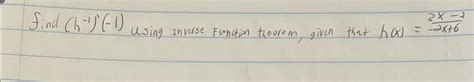 find (h⁻¹)'(-1) using inverse function theorem, given that h(x) = \frac{2x-2}{-2x+6}